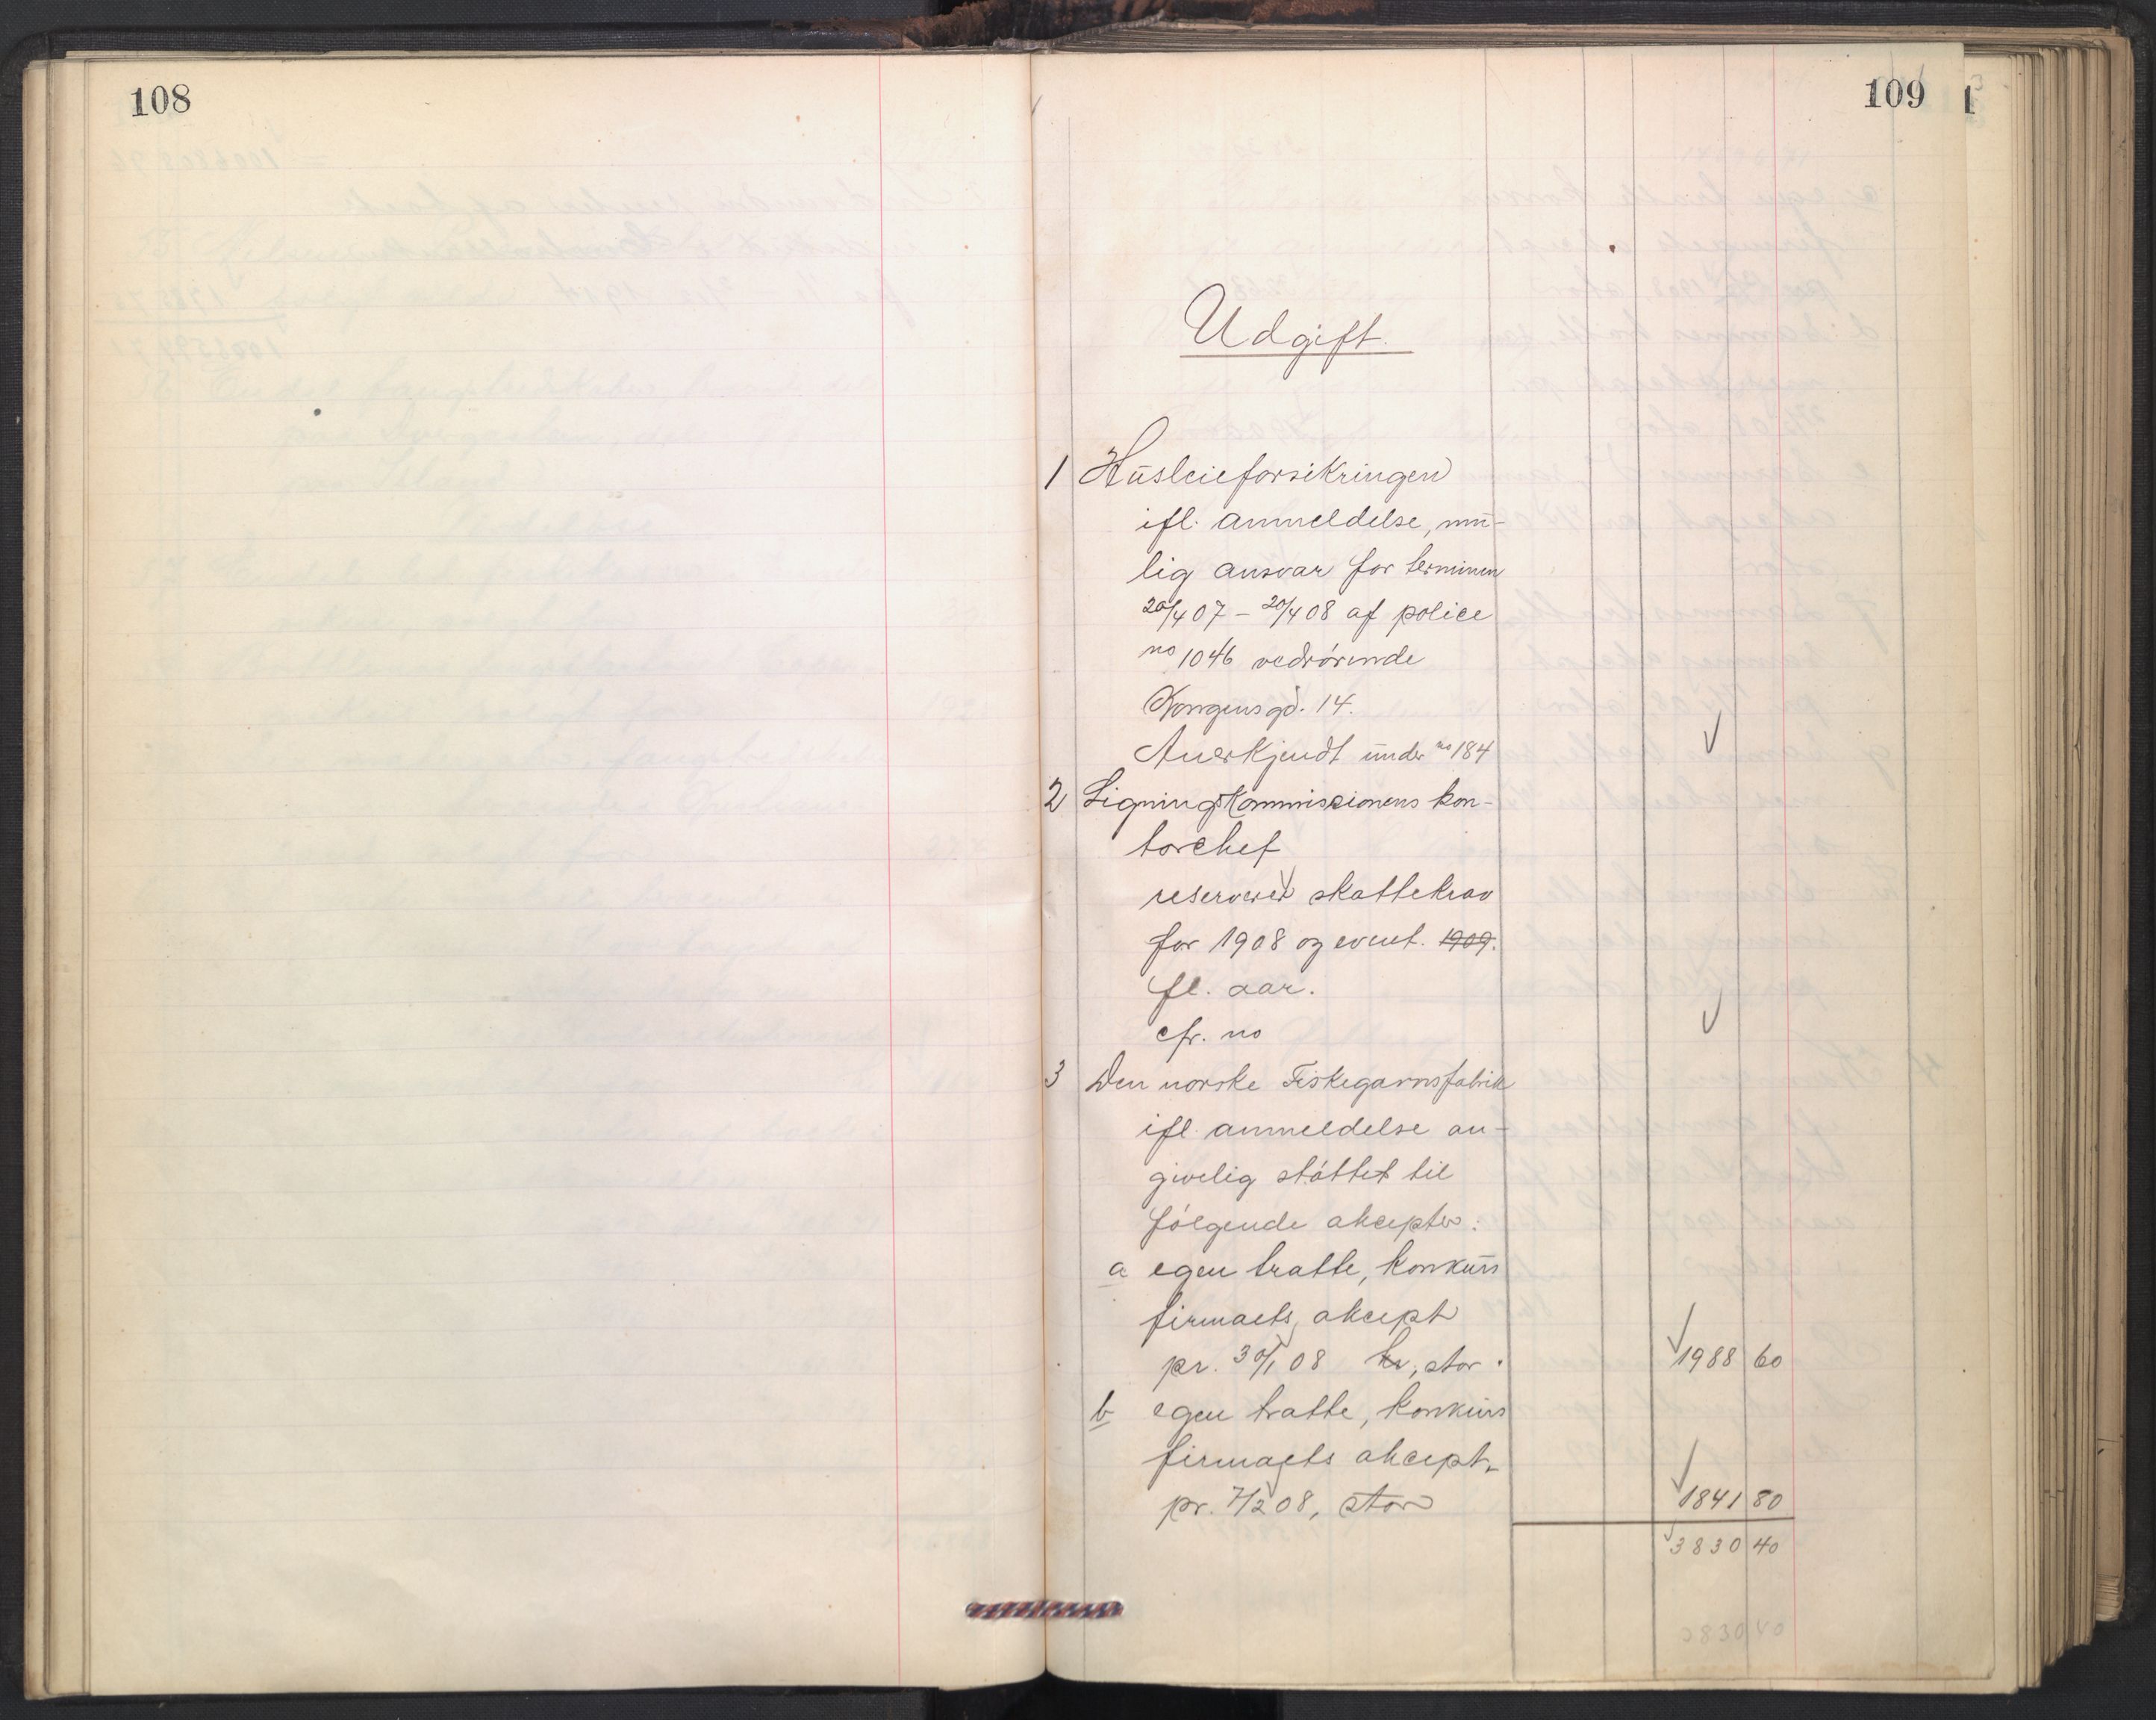 108
109
Udgift.
1 Husleieforsikringen
ifl. anmeldelse, mu-
lig ansvar for terminen
20/4 07 - 20/4 08 af police
no 1046 vedrörende
Kongensgd. 14.
Anerkjendt under no 184
2 Ligningskommissionens kon-
torchef
reserveret skattekrav
for 1908 og event. 1909.
fl. aar.
cfr. no
3 Den norske Fiskegarnsfabrik
ifl. anmeldelse an-
givelig støttet til
følgende akcepter:
a egen tratte, konkurs
firmaets akcept
pr. 30/1 08 kr, stor 1988 60
b egen tratte, konkurs
firmaets akcept
pr. 7/2 08, stor 1841 80
3830 40
3830 40